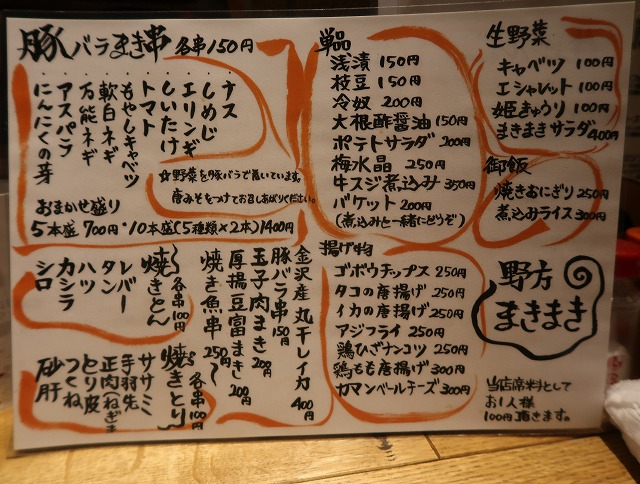 豚バラまき串 各串150円
・ナス
・しめじ
・エリンギ
・しいたけ
・トマト
・もやしキャベツ
・軟白ネギ
・万能ネギ
・アスパラ
・にんにくの芽
☆野菜を豚バラで巻いています。
唐みそをつけてお召しあがりください。
おまかせ盛り
5本盛700円・10本盛(5種類×2本)1400円
金沢産 丸干しイカ 400円
豚バラ串 150円
玉子肉まき 200円
厚揚豆富まき 200円
焼き魚串 250円
焼きとん 各串100円
レバー
タン
ハツ
カシラ
シロ
焼きとり 各串100円
ササミ
手羽先
正肉(ねぎま)
とり皮
つくね
砂肝
単品
浅漬 150円
枝豆 150円
冷奴 200円
大根酢醤油 150円
ポテトサラダ 200円
梅水晶 250円
牛スジ煮込み 350円
バケット 200円
(煮込みと一緒にどうぞ)
揚げ物
ゴボウチップス 250円
タコの唐揚げ 250円
イカの唐揚げ 250円
アジフライ 250円
鶏ひざナンコツ 250円
鶏もも唐揚げ 300円
カマンベールチーズ 300円
生野菜
キャベツ 100円
エシャレット 100円
姫きゅうり 100円
まきまきサラダ 400円
御飯
焼きおにぎり 250円
煮込みライス 300円
野方
まきまき
当店席料として
お1人様
100円頂きます。